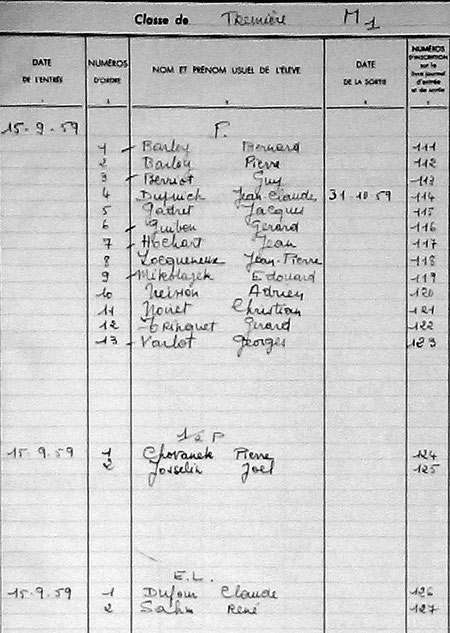 Classe de Première M1
DATE DE L'ENTRÉE NUMÉROS D'ORDRE NOM ET PRÉNOM USUEL DE L'ÉLÈVE DATE DE LA SORTIE NUMÉROS D'INSCRIPTION sur le livre journal d'entrée et de sortie
15.9.59 F.
1 Barloy Bernard 111
2 Barloy Pierre 112
3 Berriot Guy 113
4 Jean Claude 31.10.59 114
5 Gadret Jacques 115
6 Guibon Gérard 116
7 Hochart Jean 117
8 Locqueneux Jean-Pierre 118
9 Mikolajek Edouard 119
10 Adrien 120
11 Noiret Christian 121
12 Tringuet Gérard 122
13 Varlot Georges 123
1/2 P
15.9.59 1 Chovanek Pierre 124
2 Josselin Joël 125
E.L.
15.9.59 1 Dufour Claude 126
2 Sahm René 127